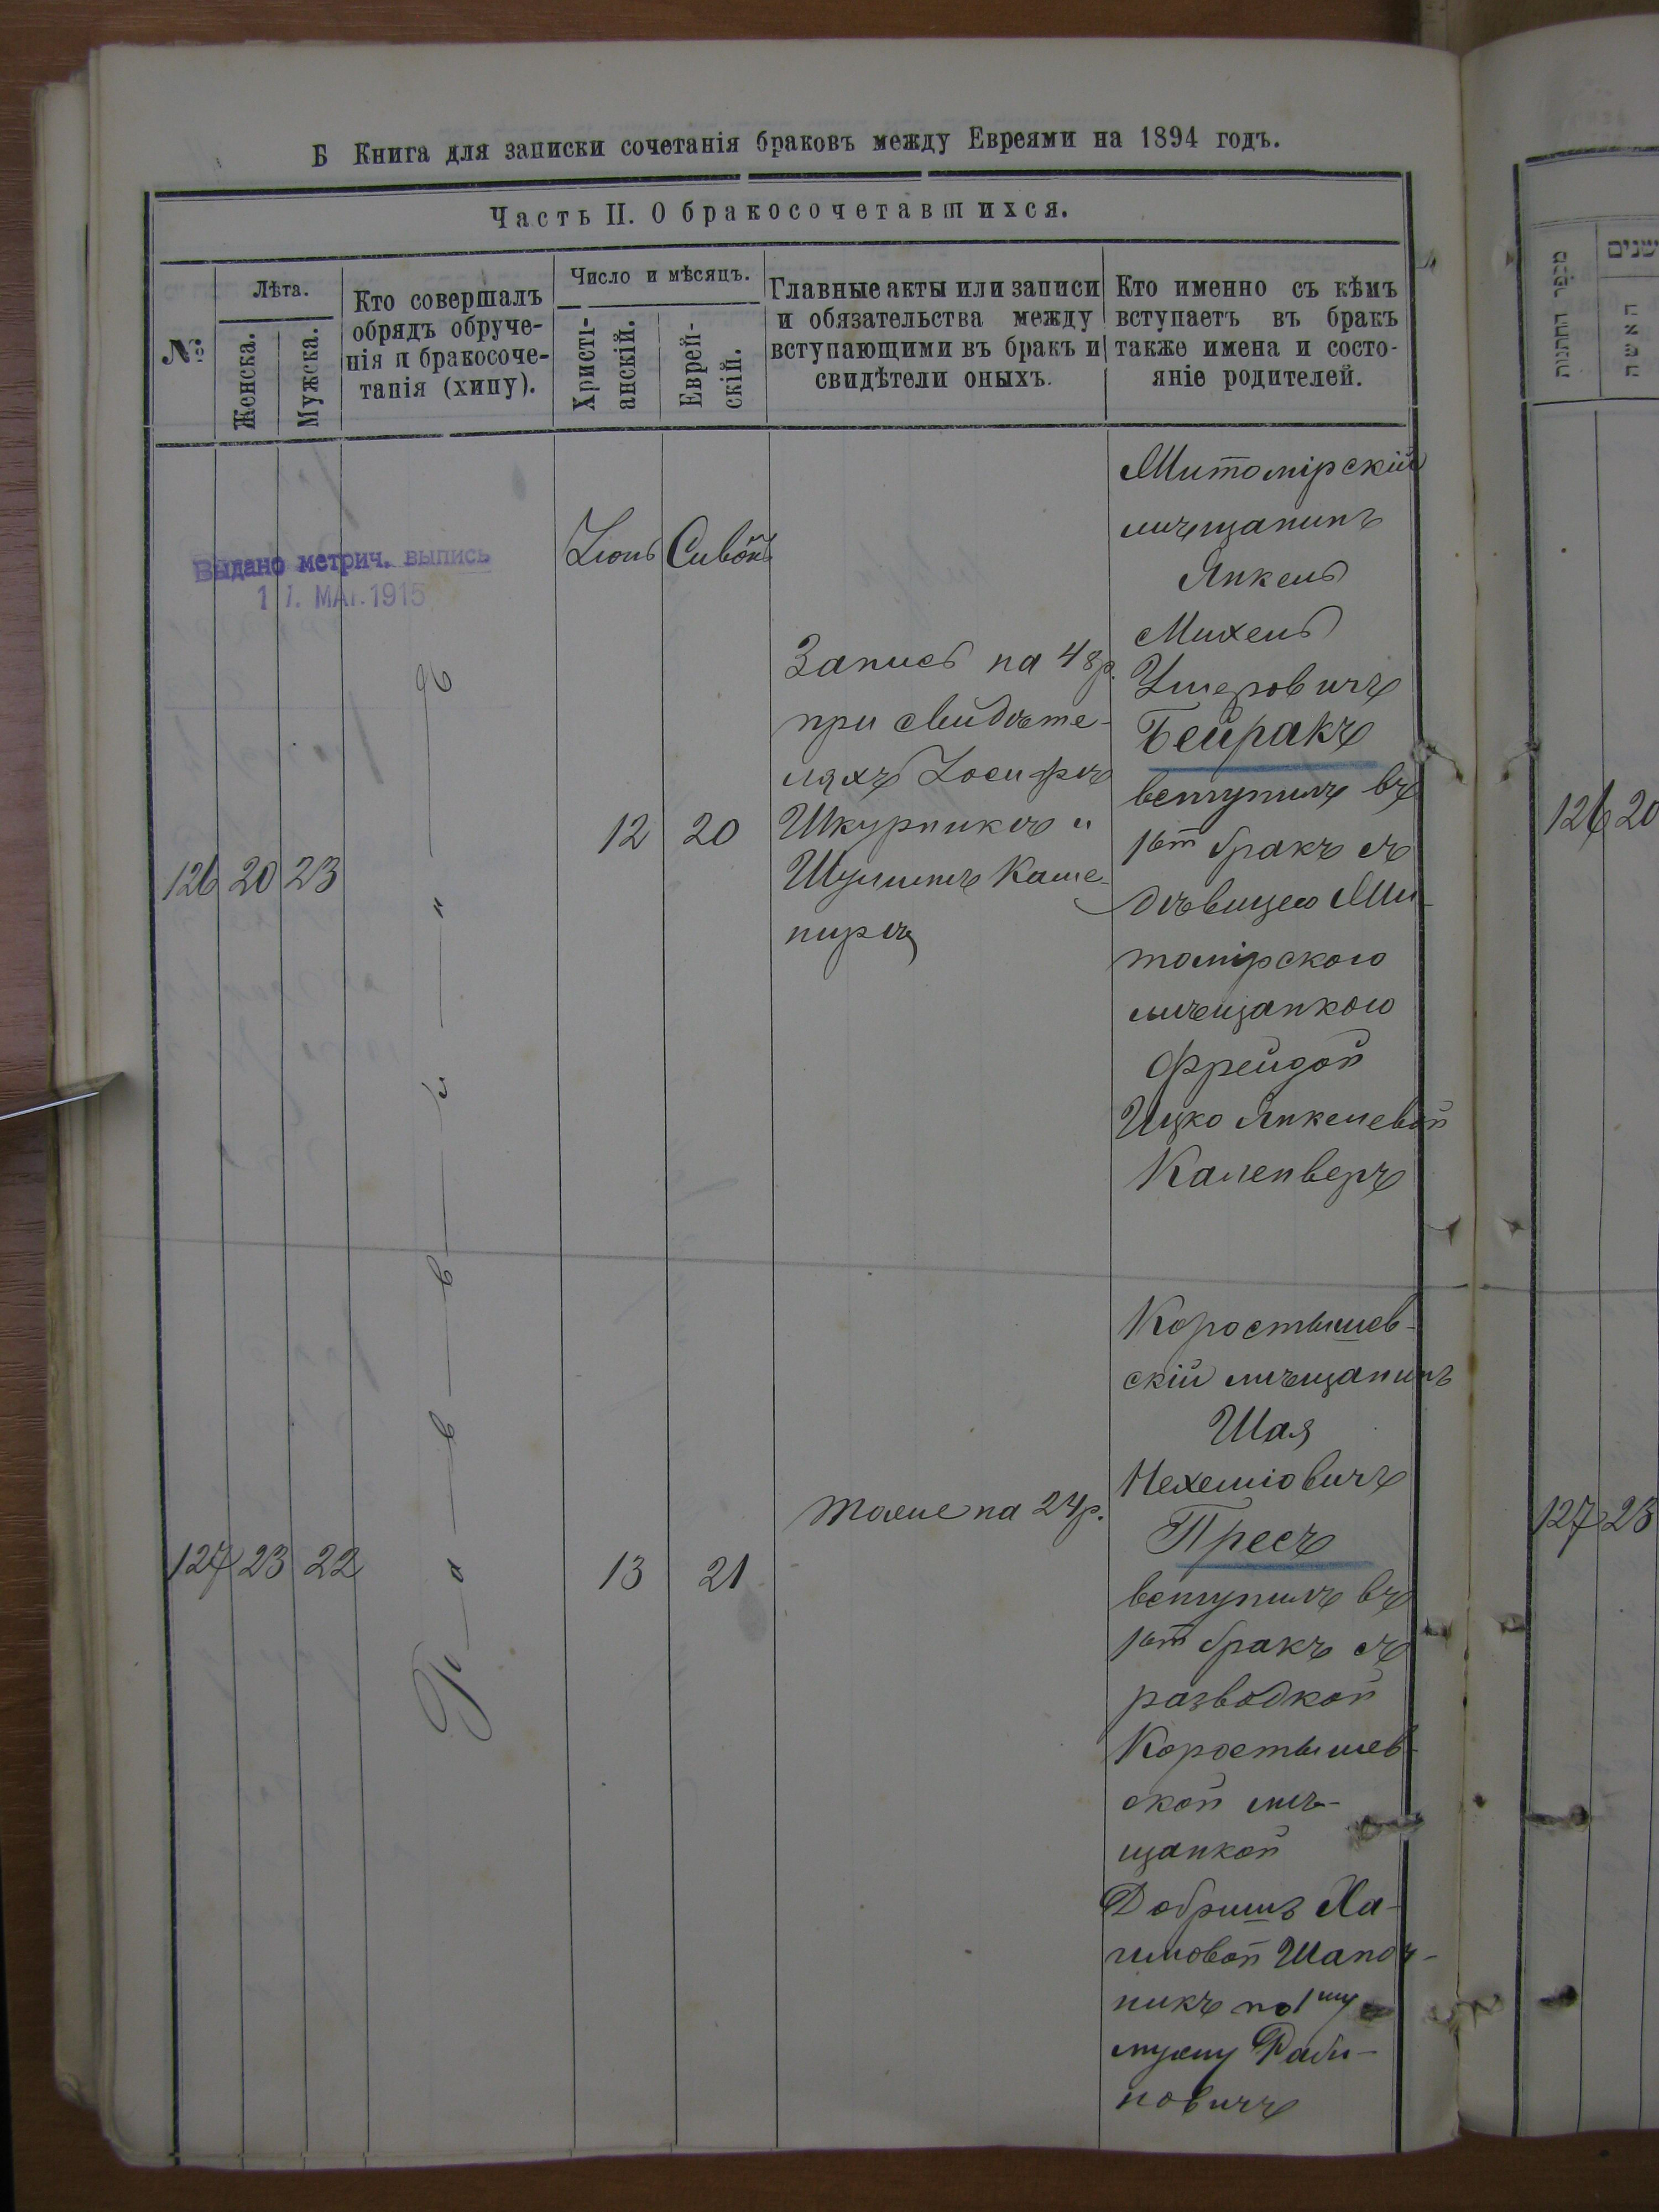 Б Книга для записки сочетанія браковъ между Евреями на 1894 годъ.
Часть II. О бракосочетавшихся.
№
Лѣта.
Женска.
Мужска.
Кто совершалъ
обрядъ обруче-
нія и бракосоче-
танія (хипу).
Число и мѣсяцъ.
Христі-
анскій.
Еврей-
скій.
Главные акты или записи
и обязательства между
вступающими въ бракъ и
свидѣтели оныхъ.
Кто именно съ кѣмъ
вступаетъ въ бракъ
также имена и состо-
яніе родителей.
Выдано метрич. выпись
МАГ. 1915
126 20 23
Раввинъ
Іюнь Сивонъ
12 20
Запись на 48 р.
при свидѣте-
ляхъ Іосифѣ
Шкурникѣ и
Шулимѣ Каше-
пирѣ
Житомірскій
мѣщанинъ
Янкель
Михель
Умеровичъ
Бейракъ
вступилъ въ
1ый бракъ съ
дѣвицею Жи-
томірского
мѣщанкою
Фрейдой
Ицко Янкелевой
Каленверъ
127 23 22
13 21
Тоже на 24 р.
Коростышев-
скій мѣщанинъ
Шая
Нехеміовичъ
Пресъ
вступилъ въ
1ый бракъ съ
разводкой
Коростышев-
ской мѣ-
щанкой
Добришъ Ха-
имовой Шапоч-
никъ по 1му
мужу Раби-
новичъ
מספר החתנות
שנים
האשה
126 20
127 23